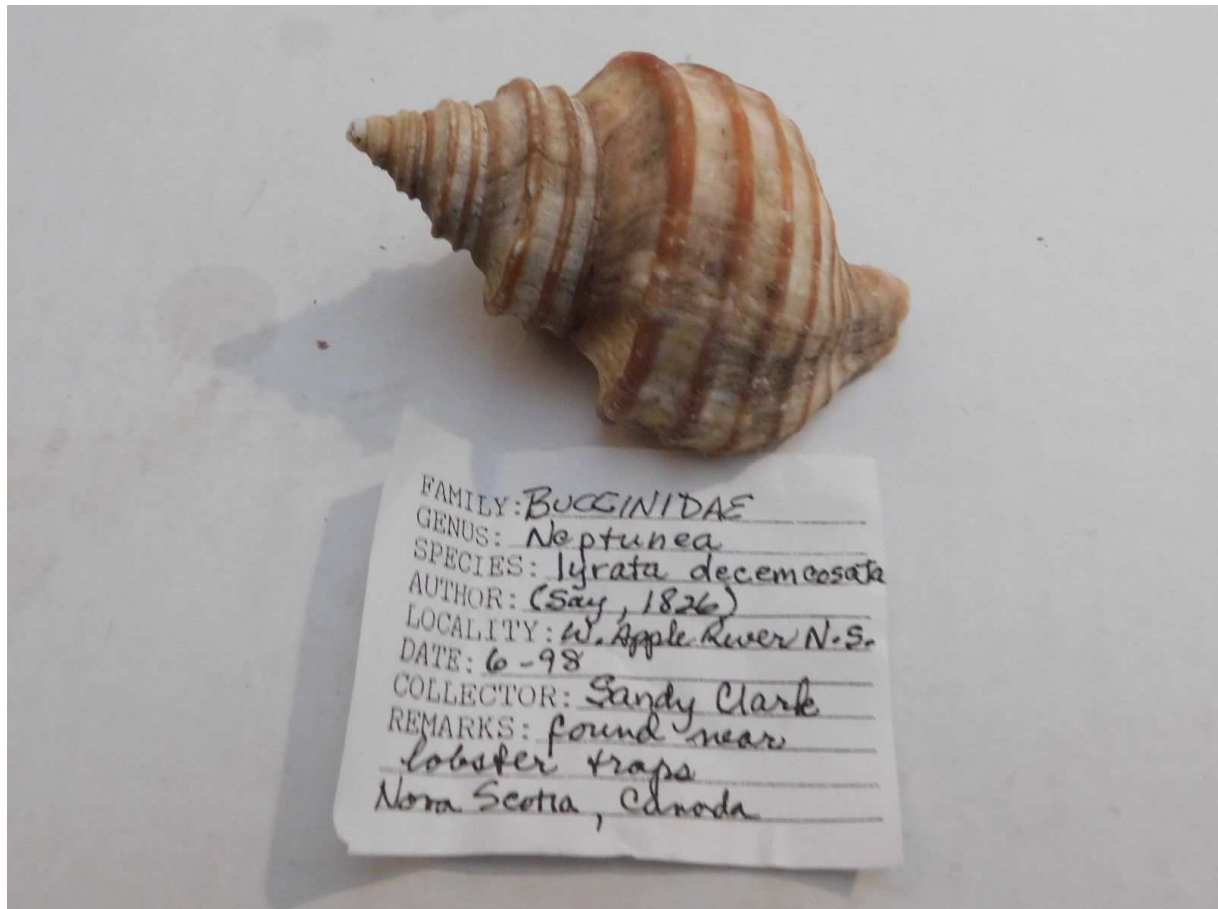 FAMILY: BUCCINIDAE
GENUS: Neptunea
SPECIES: lyrata decemcosata
AUTHOR: (Say, 1826)
LOCALITY: W. Apple River N.S.
DATE: 6-98
COLLECTOR: Sandy Clark
REMARKS: found near
lobster traps
Nova Scotia, Canada